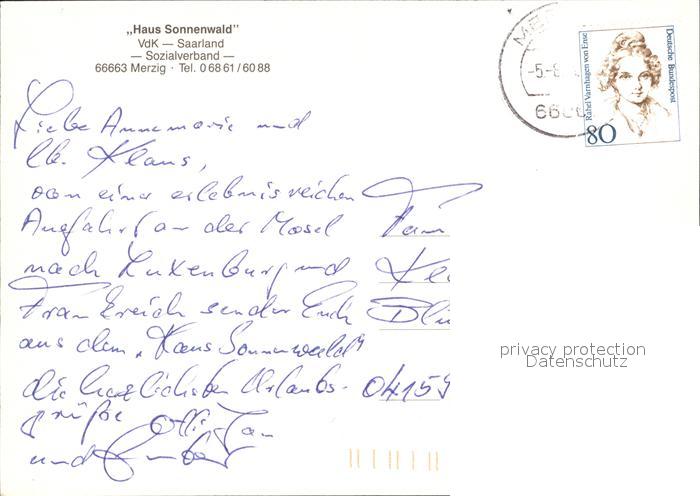 „Haus Sonnenwald"
VdK — Saarland
— Sozialverband —
66663 Merzig · Tel. 0 68 61 / 60 88
Deutsche Bundespost
Rahel Varnhagen von Ense
80
-5.-8
666
Liebe Annemarie und
lb. Klaus,
von einer erlebnisreichen
Ausfahrt an der Mosel
Fam
nach Luxenburg und
Kl
Frankreich senden Euch
aus dem „Haus Sonnenwald"
die herzlichsten Urlaubs-
04159
grüße
und
privacy protection
Datenschutz